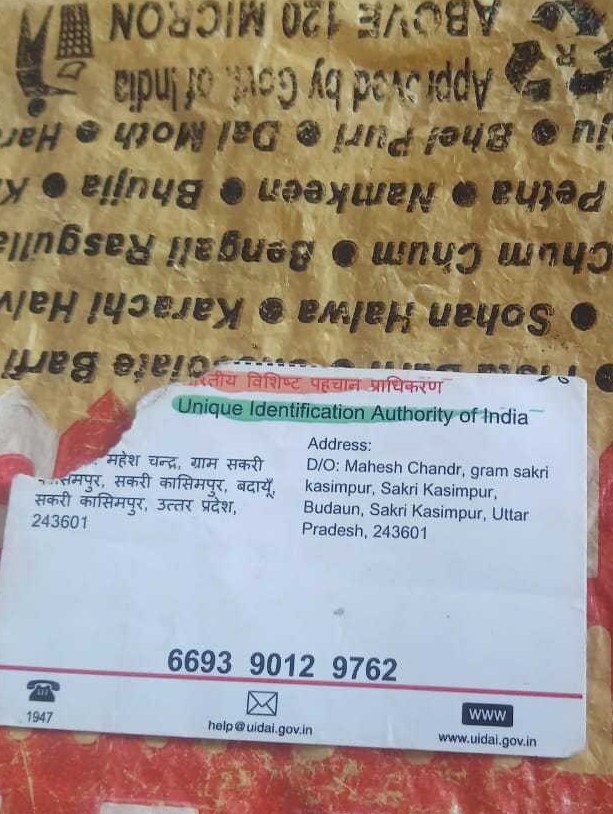 ABOVE 120 MICRON
Approved by Govt. of India
Bhel Puri ● Dal Moth ●
Petha ● Namkeen ● Bhujia ●
Chum Chum ● Bengali Rasgulla
● Sohan Halwa ● Karachi
Barfi
विशिष्ट पहचान प्राधिकरण
Unique Identification Authority of India
महेश चन्द्र, ग्राम सकरी
सकरी कासिमपुर, बदायूँ,
सकरी कासिमपुर, उत्तर प्रदेश,
243601
Address:
D/O: Mahesh Chandr, gram sakri
kasimpur, Sakri Kasimpur,
Budaun, Sakri Kasimpur, Uttar
Pradesh, 243601
6693 9012 9762
1947
help@uidai.gov.in
WWW
www.uidai.gov.in